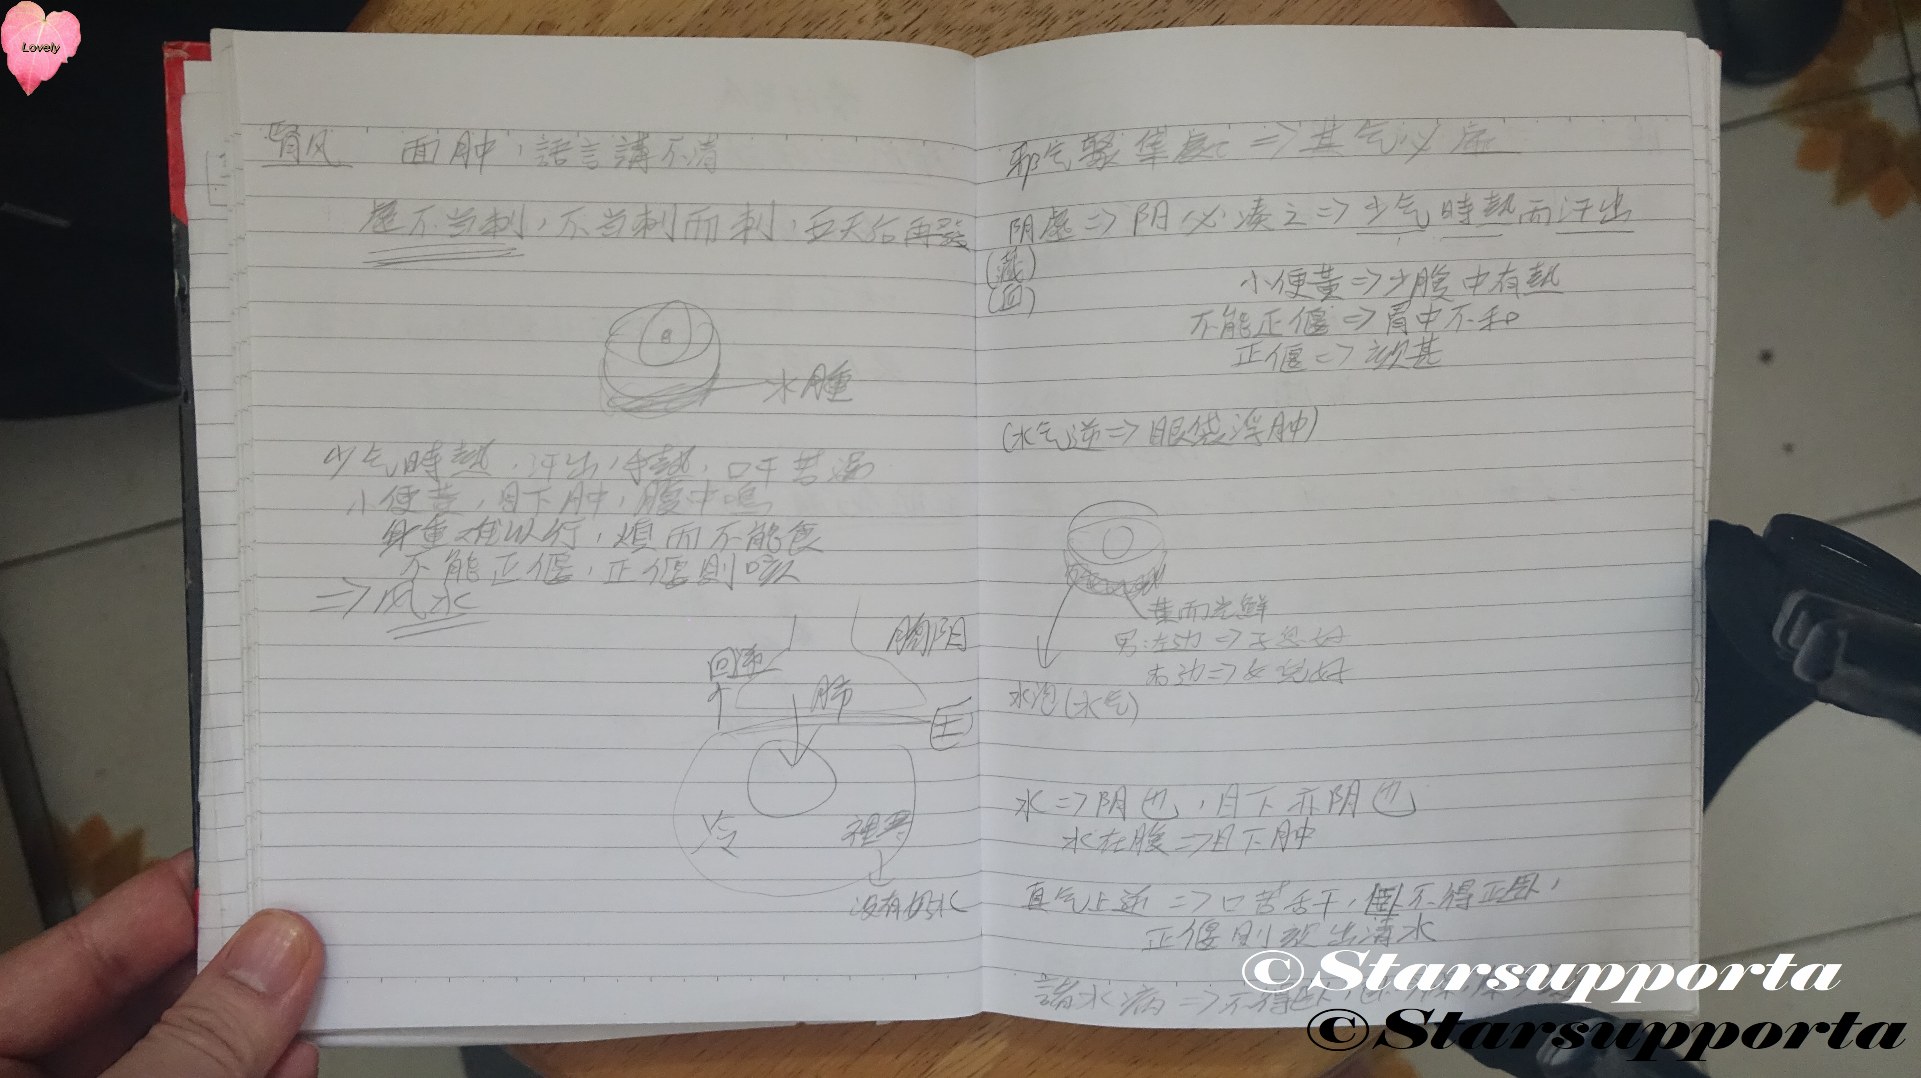 Lovely
腎风 面肿,語言講不清
虛不当刺,不当刺而刺,五天后再發
水腫
少气時熱,汗出,手熱,口干苦渴
小便黄,目下肿,腹中鳴
身重难以行,煩而不能食
不能正偃,正偃則咳
=>风水
胸阴
回逆
肺
压
冷
裡寒
沒有的水
邪气聚集處 => 其气必虛
阴虛=>阴必凑之=>少气時熱而汗出
(藏)
(血)
小便黃=>少腹中有熱
不能正偃=>胃中不和
正偃=>咳甚
(水气逆=>眼袋浮肿)
黄而光鮮
男:左边=>子息好
右边=>女兒好
水泡(水气)
水=>阴也,目下亦阴也
水在腹=>目下肿
真气上逆=>口苦舌干,卧不得正卧,
正偃則咳出清水
諸水病=>不得卧,
©Starsupporta
©Starsupporta